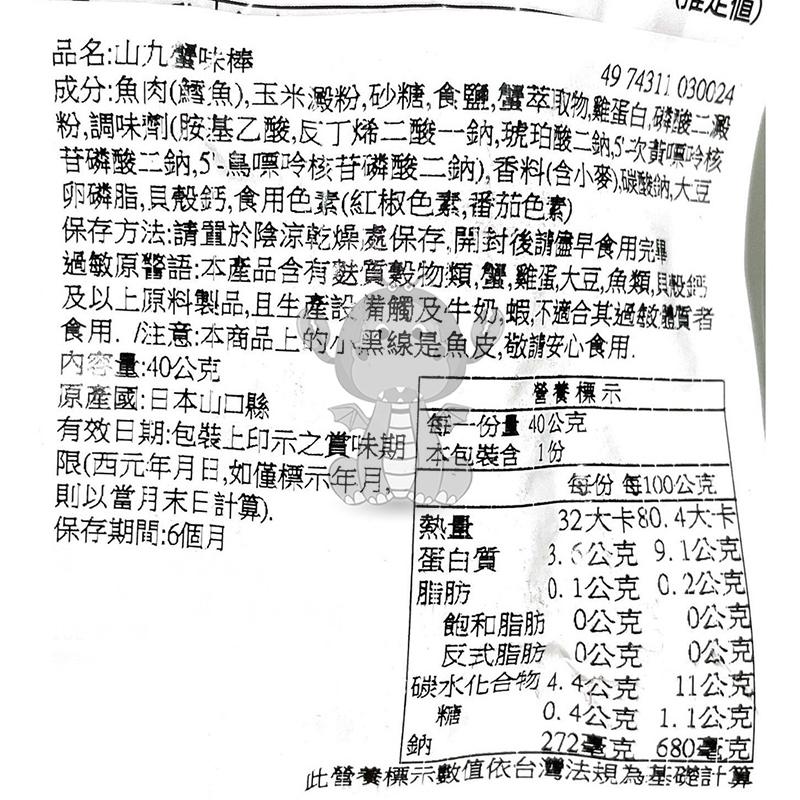 (推定值)
品名:山九蟹味棒
49 74311 030024
成分:魚肉(鱈魚),玉米澱粉,砂糖,食鹽,蟹萃取物,雞蛋白,磷酸二澱
粉,調味劑(胺基乙酸,反丁烯二酸一鈉,琥珀酸二鈉,5'-次黃嘌呤核
苷磷酸二鈉,5'-鳥嘌呤核苷磷酸二鈉),香料(含小麥),碳酸鈉,大豆
卵磷脂,貝殼鈣,食用色素(紅椒色素,番茄色素)
保存方法:請置於陰涼乾燥處保存,開封後請儘早食用完畢
過敏原警語:本產品含有麩質穀物類,蟹,雞蛋,大豆,魚類,貝殼鈣
及以上原料製品,且生產設備觸及牛奶,蝦,不適合其過敏體質者
食用. /注意:本商品上的小黑線是魚皮,敬請安心食用.
內容量:40公克
原產國:日本山口縣
有效日期:包裝上印示之賞味期
限(西元年月日,如僅標示年月,
則以當月末日計算).
保存期間:6個月
營養標示
每一份量 40公克
本包裝含 1份
每份 每100公克
熱量 32大卡 80.4大卡
蛋白質 3.6公克 9.1公克
脂肪 0.1公克 0.2公克
飽和脂肪 0公克 0公克
反式脂肪 0公克 0公克
碳水化合物 4.4公克 11公克
糖 0.4公克 1.1公克
鈉 272毫克 680毫克
此營養標示數值依台灣法規為基礎計算